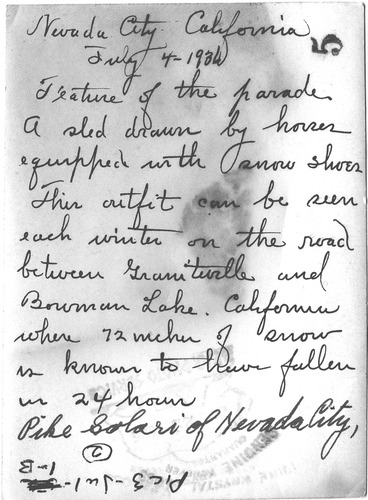 Nevada City California
July 4-1934
5
Feature of the parade.
A sled drawn by horses
equipped with snow shoes
This outfit can be seen
each winter on the road
between Graniteville and
Bowman Lake. California
where 72 inches of snow
is known to have fallen
in 24 hours
Pike Solari of Nevada City,
2
Pic 3-Jul-
1-B